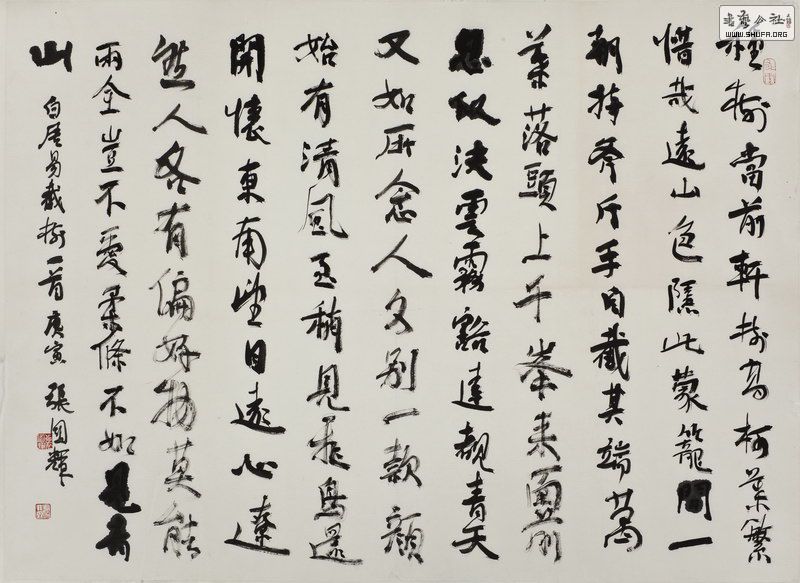 種樹當前軒樹高柯葉繁
惜哉遠山色隱此蒙籠間一
朝持斧斤手自截其端萬
葉落頭上千峯來面前
忽似決雲霧豁達覩青天
又如所念人久別一款顏
始有清風至稍見飛鳥還
開懷東南望目遠心遼
然人各有偏好物莫能
兩全豈不愛柔條不如見青
山
白居易截樹一首庚寅 張國輝
書藝公社
www.SHUFA.ORG